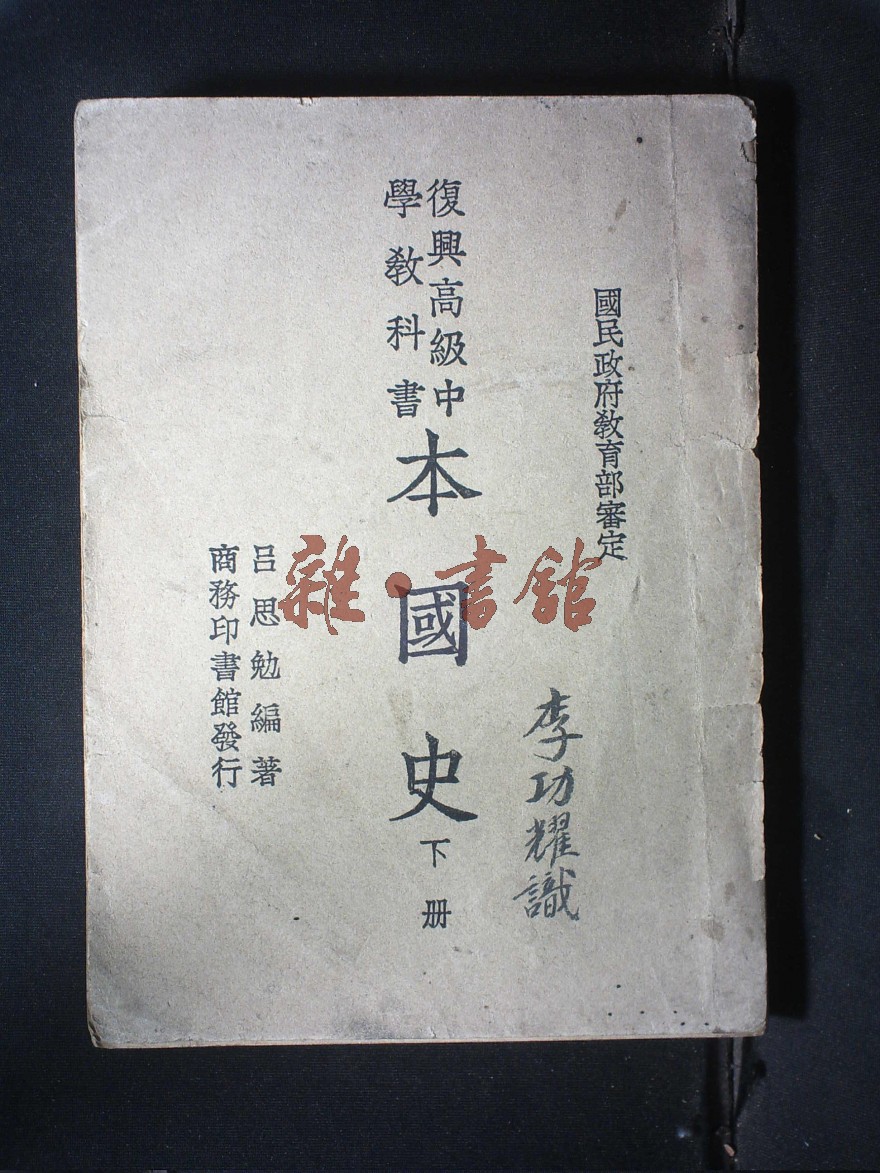 國民政府教育部審定
復興高級中
學教科書
本國史
下册
李功耀識
呂思勉編著
商務印書館發行
雜·書館